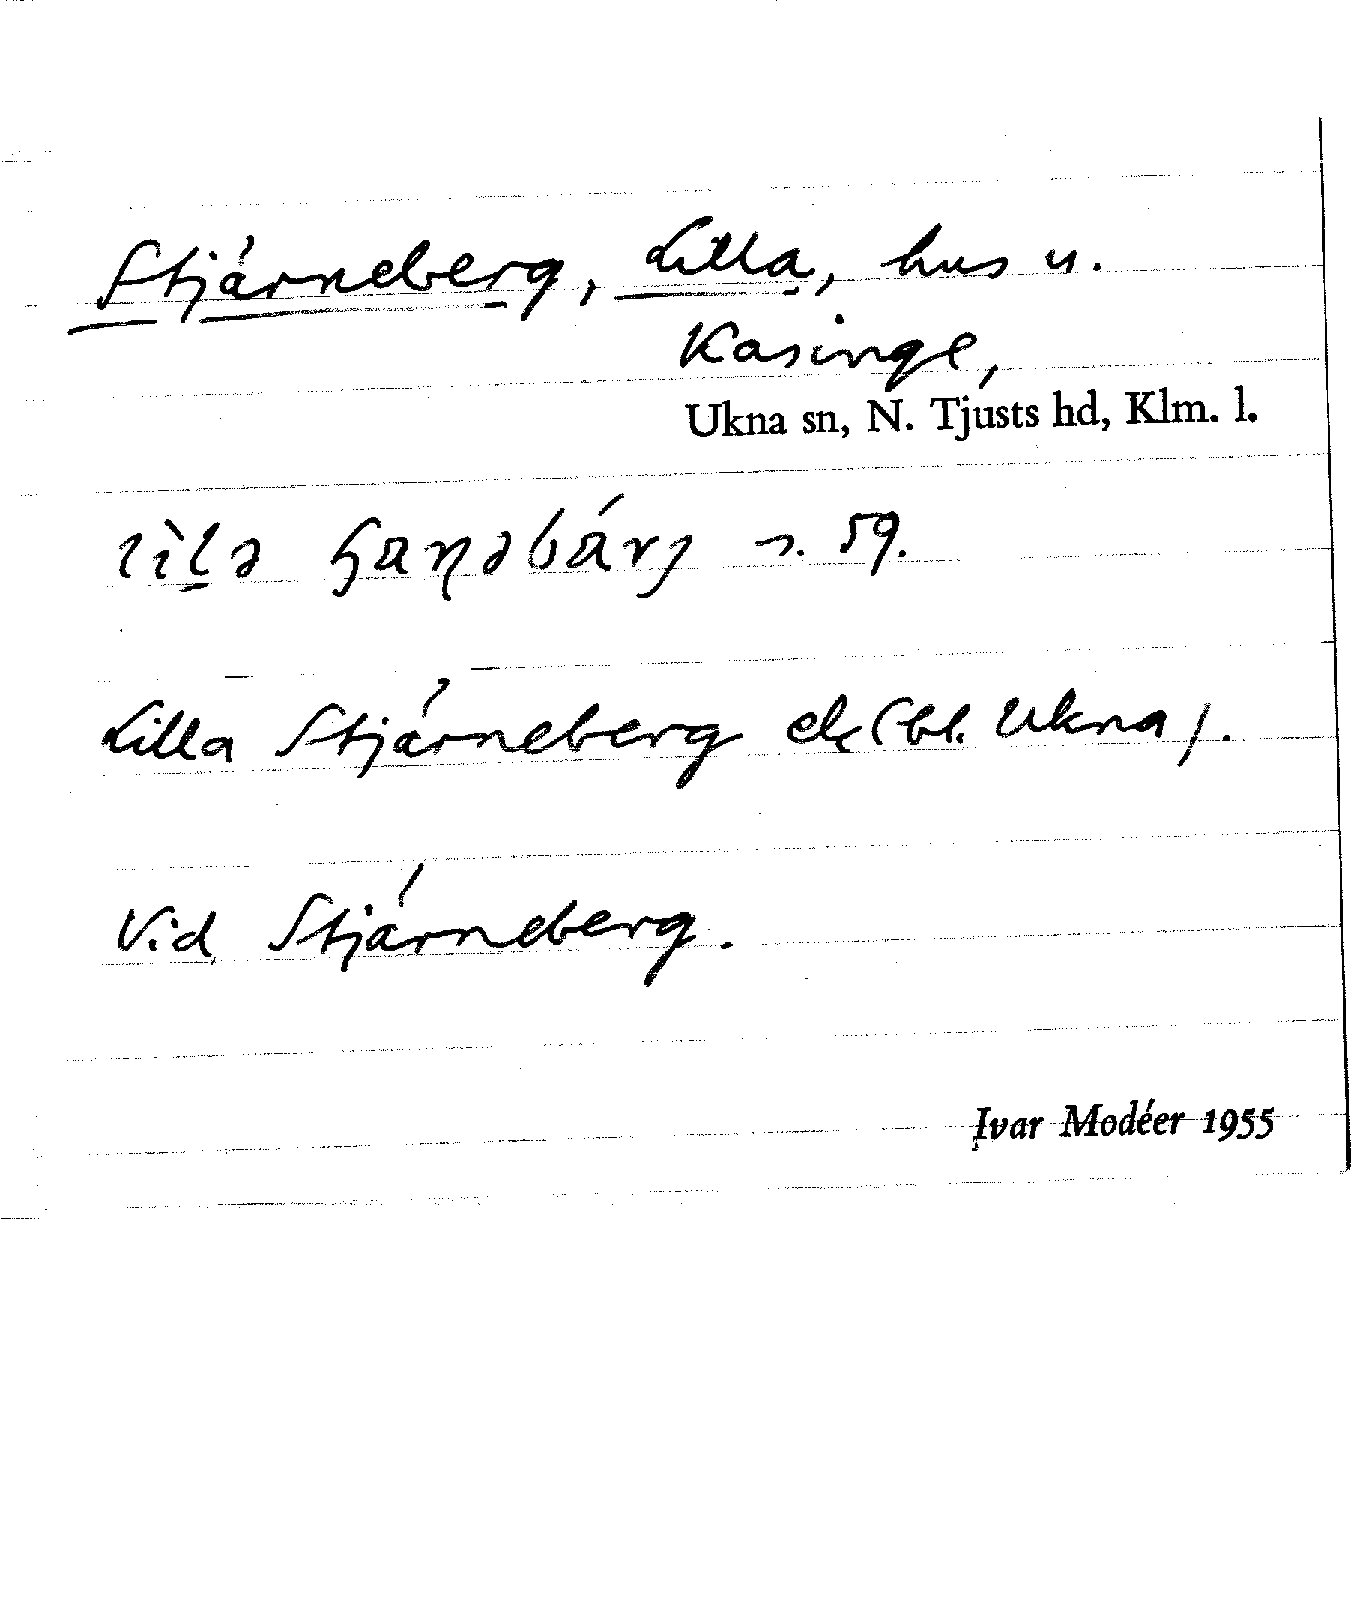 Stjärneberg, Lilla, hus u.
Kasinge,
Ukna sn, N. Tjusts hd, Klm. l.
s. 59.
Lilla Stjärneberg ek (bl. Ukna).
Vid Stjärneberg.
Ivar Modéer 1955